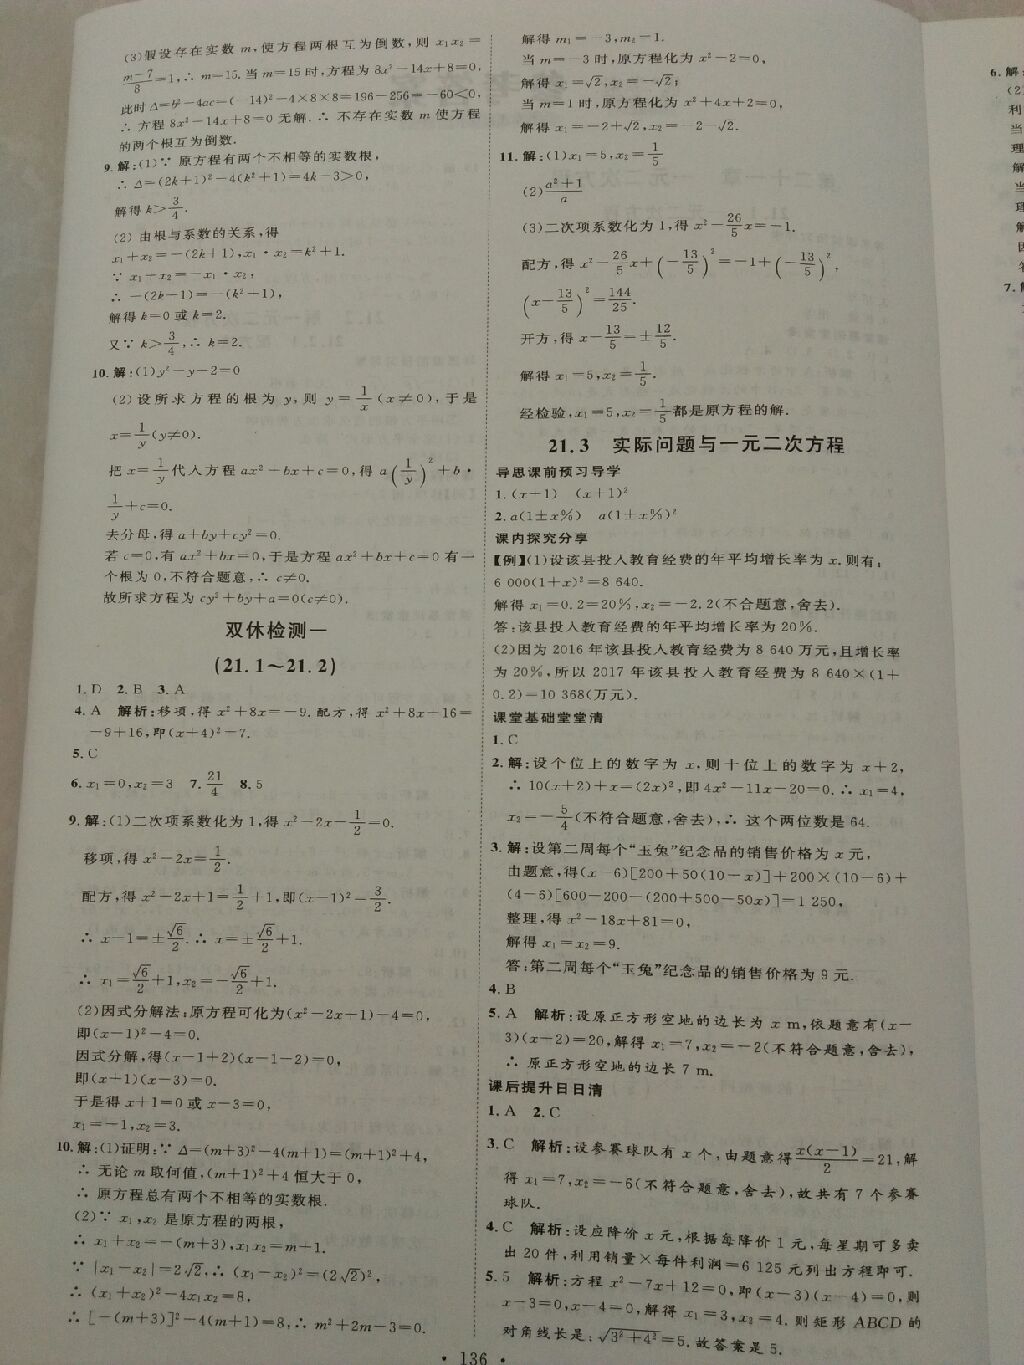 (3)假设存在实数 m,使方程两根互为倒数,则 x₁x₂=
(m-7)/8=1,∴ m=15.当 m=15 时,方程为 8x²-14x+8=0,
此时 Δ=b²-4ac=(-14)²-4×8×8=196-256=-60<0,
∴ 方程 8x²-14x+8=0 无解.∴ 不存在实数 m 使方程
的两个根互为倒数.
9.解:(1)∵ 原方程有两个不相等的实数根,
∴ Δ=(2k+1)²-4(k²+1)=4k-3>0,
解得 k>3/4.
(2) 由根与系数的关系,得
x₁+x₂=-(2k+1),x₁·x₂=k²+1.
∵ x₁+x₂=-x₁·x₂,
∴ -(2k+1)=-(k²+1),
解得 k=0 或 k=2.
又∵ k>3/4,∴ k=2.
10.解:(1)y²-y-2=0
(2) 设所求方程的根为 y,则 y=1/x(x≠0),于是
x=1/y(y≠0).
把 x=1/y代入方程 ax²+bx+c=0,得 a(1/y)²+b·
1/y+c=0.
去分母,得 a+by+cy²=0.
若 c=0,有 ax²+bx=0,于是方程 ax²+bx+c=0 有一
个根为 0,不符合题意,∴ c≠0.
故所求方程为 cy²+by+a=0(c≠0).
双休检测一
(21.1～21.2)
1.D 2.B 3.A
4.A 解析:移项,得 x²+8x=-9.配方,得 x²+8x+16=
-9+16,即(x+4)²=7.
5.C
6.x₁=0,x₂=3 7.21/4 8.5
9.解:(1)二次项系数化为 1,得 x²-2x-1/2=0.
移项,得 x²-2x=1/2.
配方,得 x²-2x+1=1/2+1,即(x-1)²=3/2.
∴ x-1=±√6/2.∴ x=±√6/2+1.
∴ x₁=√6/2+1,x₂=-√6/2+1.
(2)因式分解法:原方程可化为(x²-2x+1)-4=0,
即(x-1)²-4=0.
因式分解,得(x-1+2)(x-1-2)=0,
即(x+1)(x-3)=0.
于是得 x+1=0 或 x-3=0,
x₁=-1,x₂=3.
10.解:(1)证明:∵ Δ=(m+3)²-4(m+1)=(m+1)²+4,
∴ 无论 m 取何值,(m+1)²+4 恒大于 0,
∴ 原方程总有两个不相等的实数根.
(2)∵ x₁,x₂ 是原方程的两根,
∴ x₁+x₂=-(m+3),x₁x₂=m+1.
∵ |x₁-x₂|=2√2,∴ (x₁-x₂)²=(2√2)²,
∴ (x₁+x₂)²-4x₁x₂=8,
∴ [-(m+3)]²-4(m+1)=8,∴ m²+2m-3=0.
解得 m₁=-3,m₂=1.
当 m=-3 时,原方程化为 x²-2=0,
解得 x₁=√2,x₂=-√2;
当 m=1 时,原方程化为 x²+4x+2=0,
解得 x₁=-2+√2,x₂=-2-√2.
11.解:(1)x₁=5,x₂=1/5
(2)(a²+1)/a
(3)二次项系数化为 1,得 x²-26/5x=-1.
配方,得 x²-26/5x+(-13/5)²=-1+(-13/5)²,
(x-13/5)²=144/25.
开方,得 x-13/5=±12/5.
解得 x₁=5,x₂=1/5.
经检验,x₁=5,x₂=1/5都是原方程的解.
21.3 实际问题与一元二次方程
导思课前预习导学
1.(x-1) (x+1)²
2.a(1±x%) a(1±x%)²
课内探究分享
【例】(1)设该县投入教育经费的年平均增长率为 x.则有:
6 000(1+x)²=8 640.
解得 x₁=0.2=20%,x₂=-2.2(不合题意,舍去).
答:该县投入教育经费的年平均增长率为 20%.
(2)因为 2016 年该县投入教育经费为 8 640 万元,且增长率
为 20%,所以 2017 年该县投入教育经费为 8 640×(1+
0.2)=10 368(万元).
课堂基础堂堂清
1.C
2.解:设个位上的数字为 x,则十位上的数字为 x+2,
∴ 10(x+2)+x=(2x)²,即 4x²-11x-20=0.∴ x₁=4,
x₂=-5/4(不符合题意,舍去),∴ 这个两位数是 64.
3.解:设第二周每个“玉兔”纪念品的销售价格为 x 元,
由题意,得(x-6)[200+50(10-x)]+200×(10-6)+
(4-6)[600-200-(200+500-50x)]=1 250,
整理,得 x²-18x+81=0,
解得 x₁=x₂=9.
答:第二周每个“玉兔”纪念品的销售价格为 9 元.
4.B
5.A 解析:设原正方形空地的边长为 x m,依题意有(x-
3)(x-2)=20,解得 x₁=7,x₂=-2(不符合题意,舍去),
∴ 原正方形空地的边长 7 m.
课后提升日日清
1.A 2.C
3.C 解析:设参赛球队有 x 个,由题意得x(x-1)/2=21,解
得 x₁=7,x₂=-6(不符合题意,舍去),故共有 7 个参赛
球队.
4.C 解析:设应降价 x 元,根据每降价 1 元,每星期可多卖
出 20 件,利用销量×每件利润=6 125 元列出方程即可.
5.5 解析:方程 x²-7x+12=0,即(x-3)(x-4)=0,则
x-3=0,x-4=0,解得 x₁=3,x₂=4.则矩形 ABCD 的
对角线长是:√(3²+4²)=5.故答案是 5.
· 136 ·
6.解:
(2)
利
当
理
解
当
理
解
因
7.解